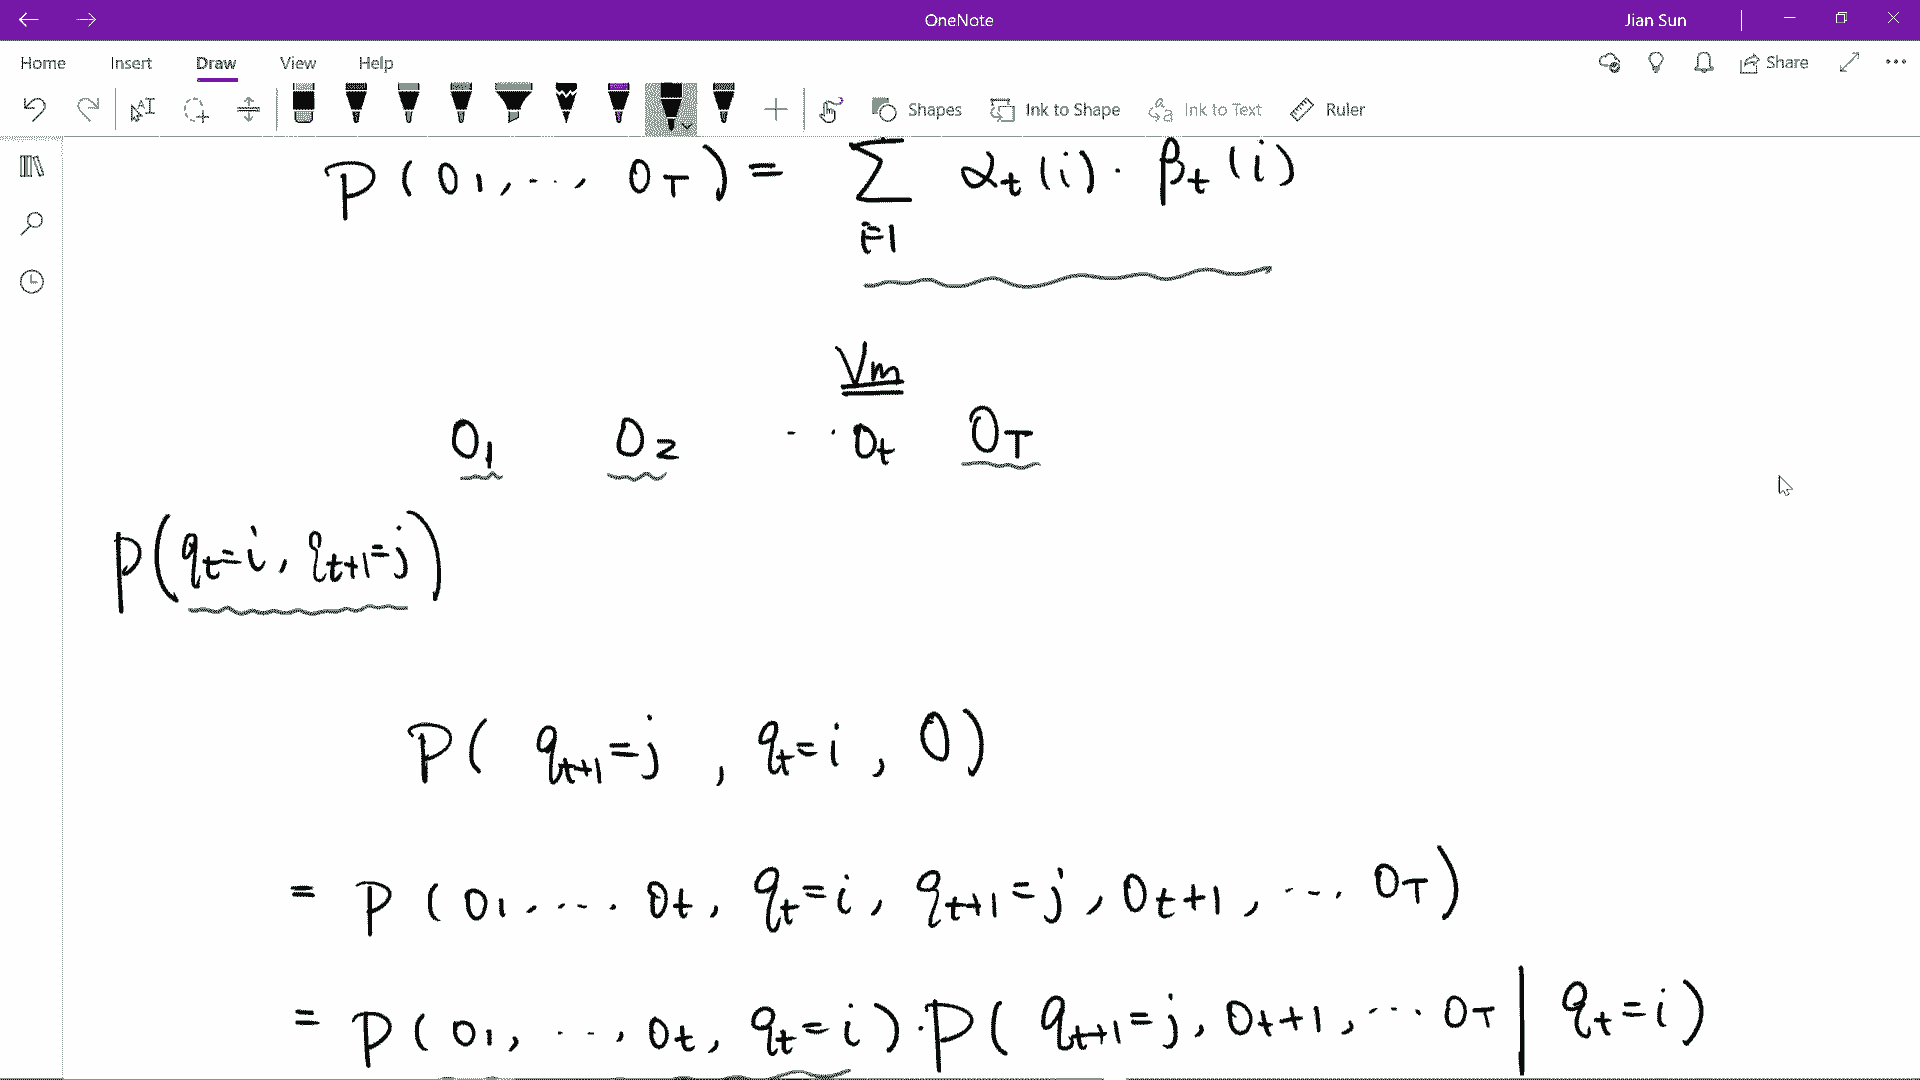 OneNote
Jian Sun
Home Insert Draw View Help
Share
Shapes Ink to Shape Ink to Text Ruler
P(O1, ..., OT) = Σ i=1 αt(i) · βt(i)
Vm
O1 O2 ... Ot OT
P(qt=i, qt+1=j)
P( qt+1=j , qt=i , O)
= P(O1, ... Ot, qt=i, qt+1=j, Ot+1, ... OT)
= P(O1, ..., Ot, qt=i) · P( qt+1=j, Ot+1, ... OT | qt=i)